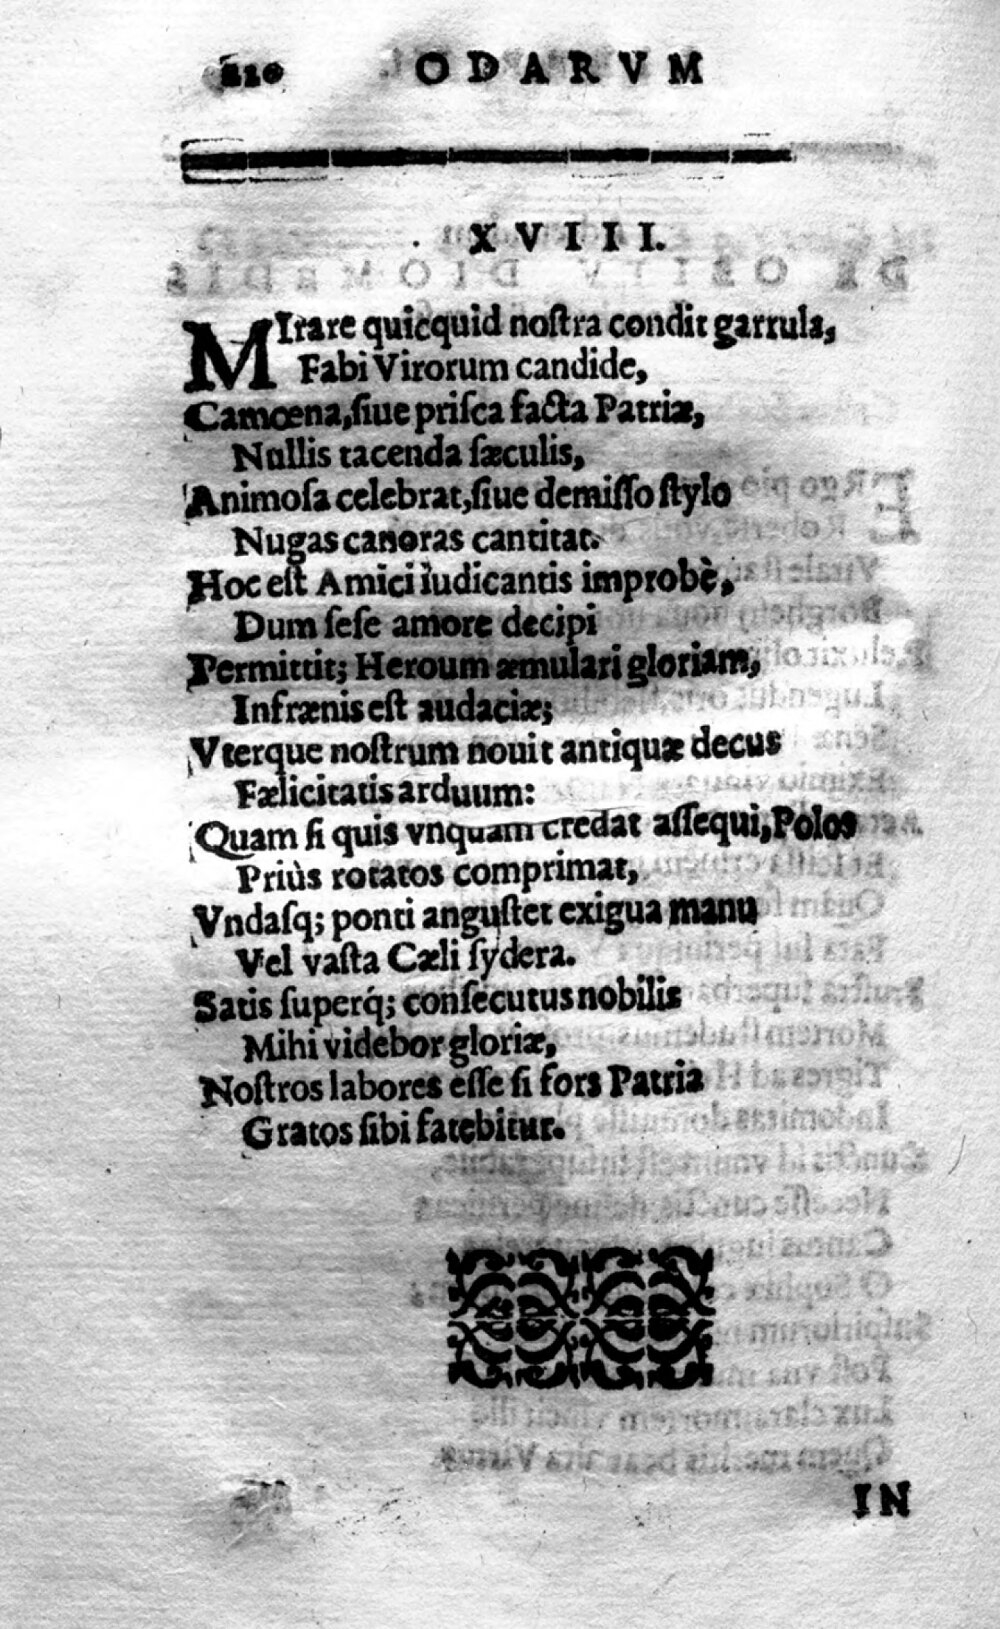 210 ODARVM
XVIII.
MIrare quicquid noſtra condit garrula,
Fabi Virorum candide,
Camœna, ſiue priſca facta Patriæ,
Nullis tacenda ſæculis,
Animoſa celebrat, ſiue demiſſo ſtylo
Nugas canoras cantitat.
Hoc eſt Amici iudicantis improbè,
Dum ſeſe amore decipi
Permittit; Heroum æmulari gloriam,
Infrænis eſt audaciæ;
Vterque noſtrum nouit antiquæ decus
Fælicitatis arduum:
Quam ſi quis vnquam credat aſſequi, Polos
Priùs rotatos comprimat,
Vndaſq; ponti anguſtet exigua manu
Vel vaſta Cæli ſydera.
Satis ſuperq́; conſecutus nobilis
Mihi videbor gloriæ,
Noſtros labores eſſe ſi fors Patria
Gratos ſibi fatebitur.
IN